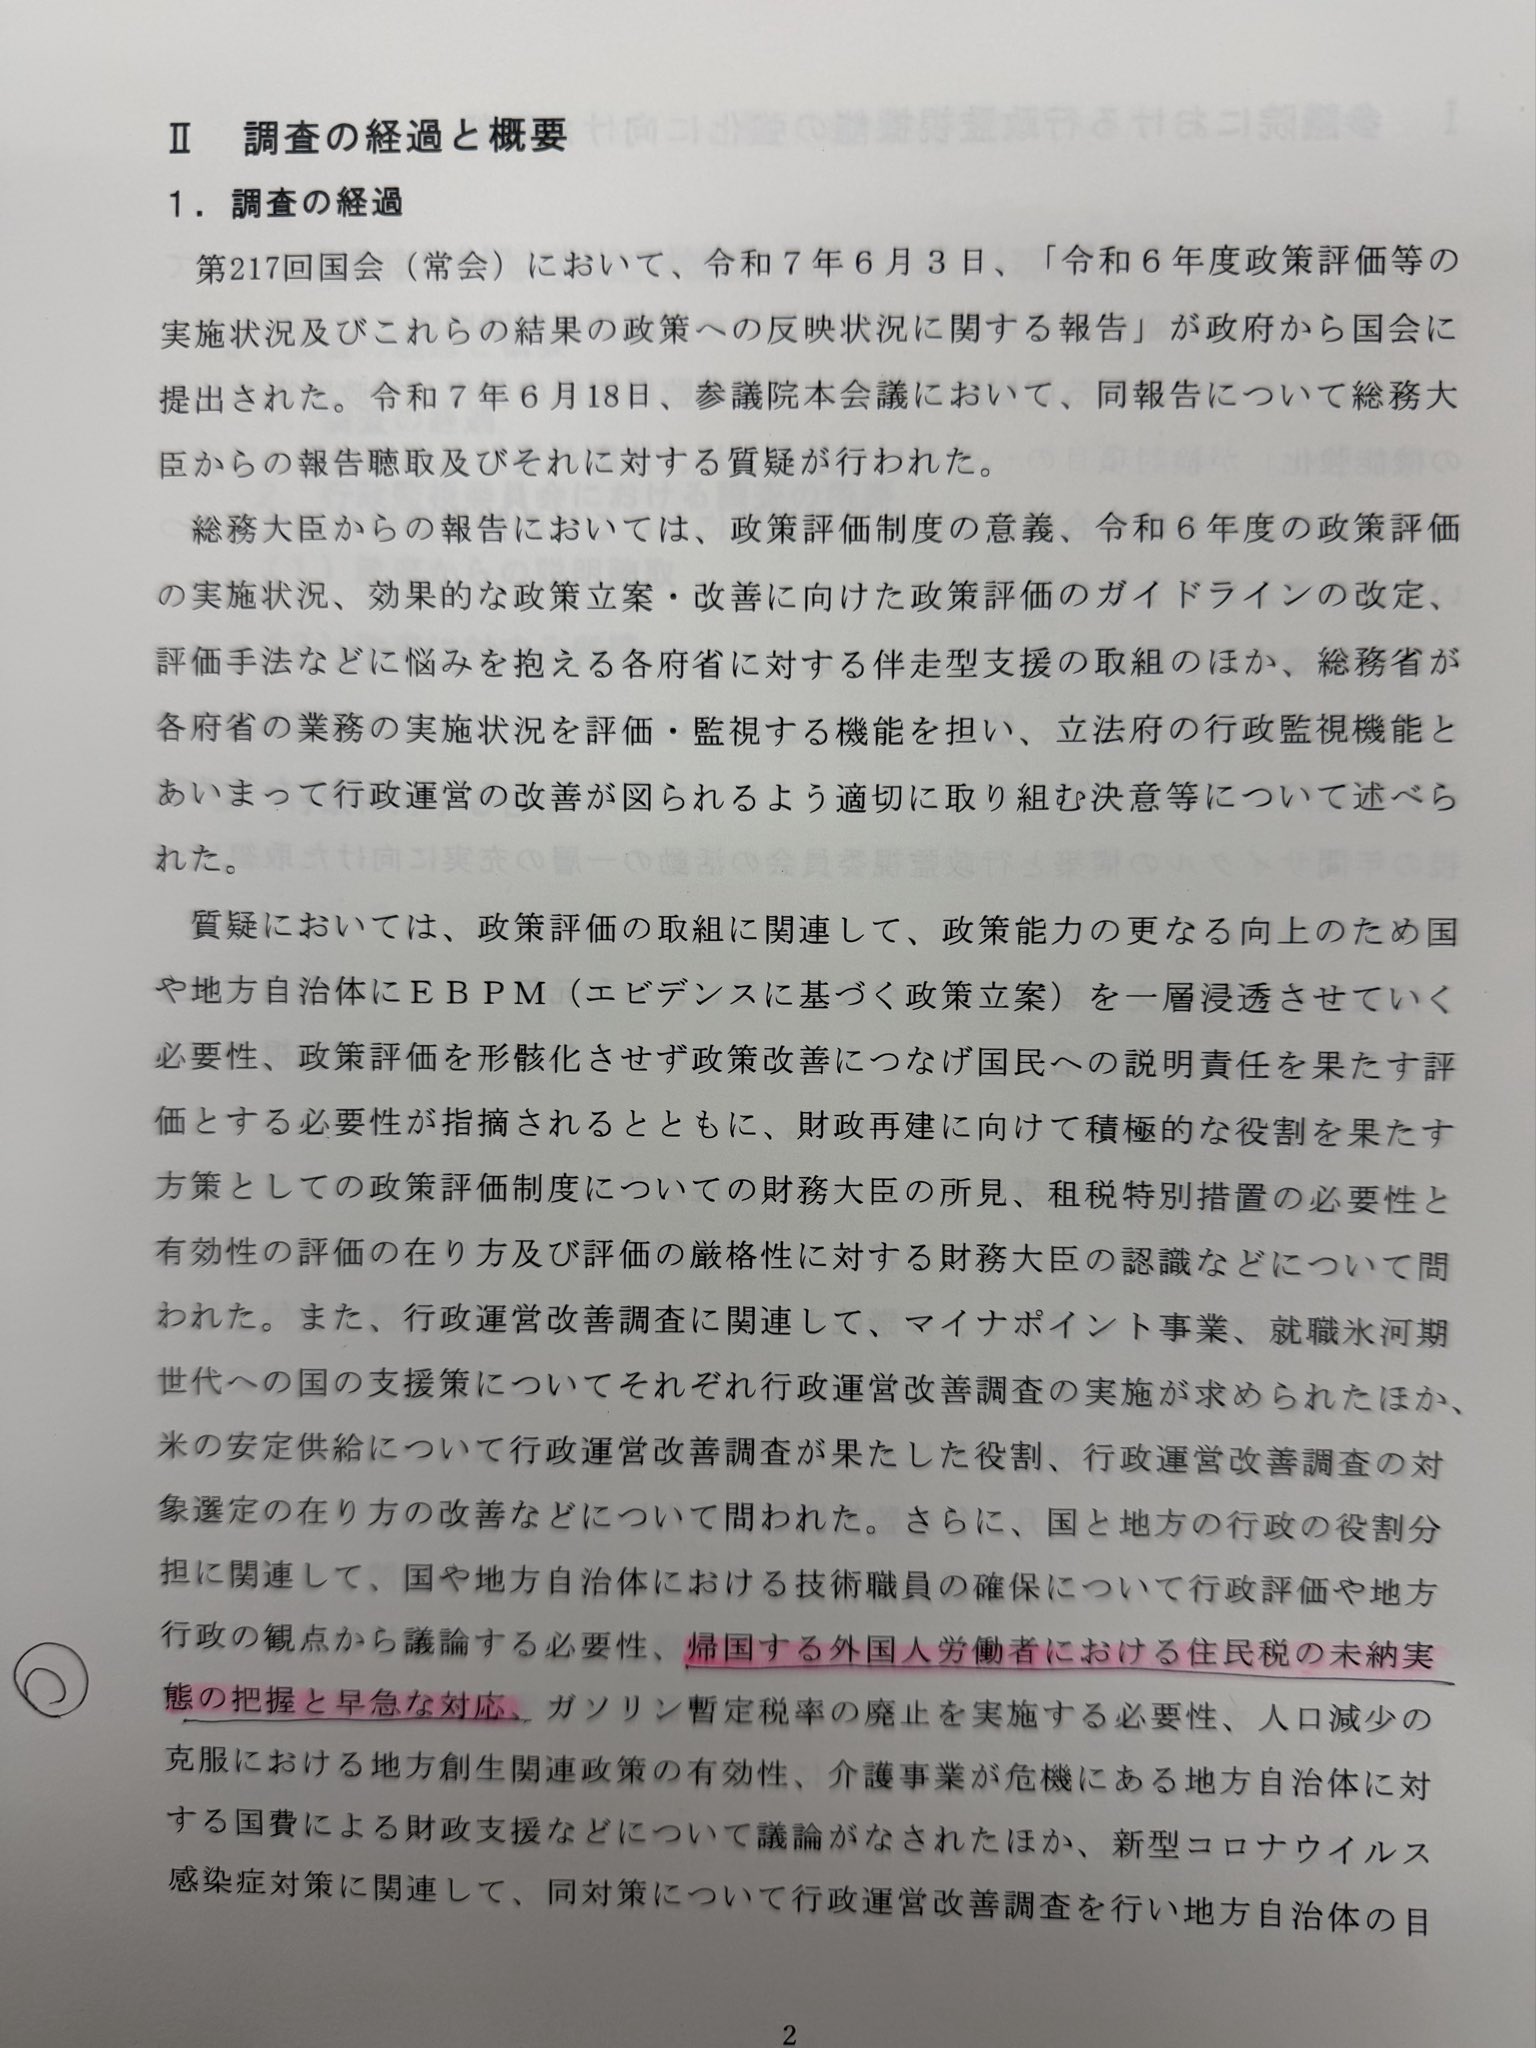 Ⅱ　調査の経過と概要
１．調査の経過
第217回国会（常会）において、令和７年６月３日、「令和６年度政策評価等の
実施状況及びこれらの結果の政策への反映状況に関する報告」が政府から国会に
提出された。令和７年６月18日、参議院本会議において、同報告について総務大
臣からの報告聴取及びそれに対する質疑が行われた。
総務大臣からの報告においては、政策評価制度の意義、令和６年度の政策評価
の実施状況、効果的な政策立案・改善に向けた政策評価のガイドラインの改定、
評価手法などに悩みを抱える各府省に対する伴走型支援の取組のほか、総務省が
各府省の業務の実施状況を評価・監視する機能を担い、立法府の行政監視機能と
あいまって行政運営の改善が図られるよう適切に取り組む決意等について述べら
れた。
質疑においては、政策評価の取組に関連して、政策能力の更なる向上のため国
や地方自治体にＥＢＰＭ（エビデンスに基づく政策立案）を一層浸透させていく
必要性、政策評価を形骸化させず政策改善につなげ国民への説明責任を果たす評
価とする必要性が指摘されるとともに、財政再建に向けて積極的な役割を果たす
方策としての政策評価制度についての財務大臣の所見、租税特別措置の必要性と
有効性の評価の在り方及び評価の厳格性に対する財務大臣の認識などについて問
われた。また、行政運営改善調査に関連して、マイナポイント事業、就職氷河期
世代への国の支援策についてそれぞれ行政運営改善調査の実施が求められたほか、
米の安定供給について行政運営改善調査が果たした役割、行政運営改善調査の対
象選定の在り方の改善などについて問われた。さらに、国と地方の行政の役割分
担に関連して、国や地方自治体における技術職員の確保について行政評価や地方
行政の観点から議論する必要性、帰国する外国人労働者における住民税の未納実
態の把握と早急な対応、ガソリン暫定税率の廃止を実施する必要性、人口減少の
克服における地方創生関連政策の有効性、介護事業が危機にある地方自治体に対
する国費による財政支援などについて議論がなされたほか、新型コロナウイルス
感染症対策に関連して、同対策について行政運営改善調査を行い地方自治体の目
2